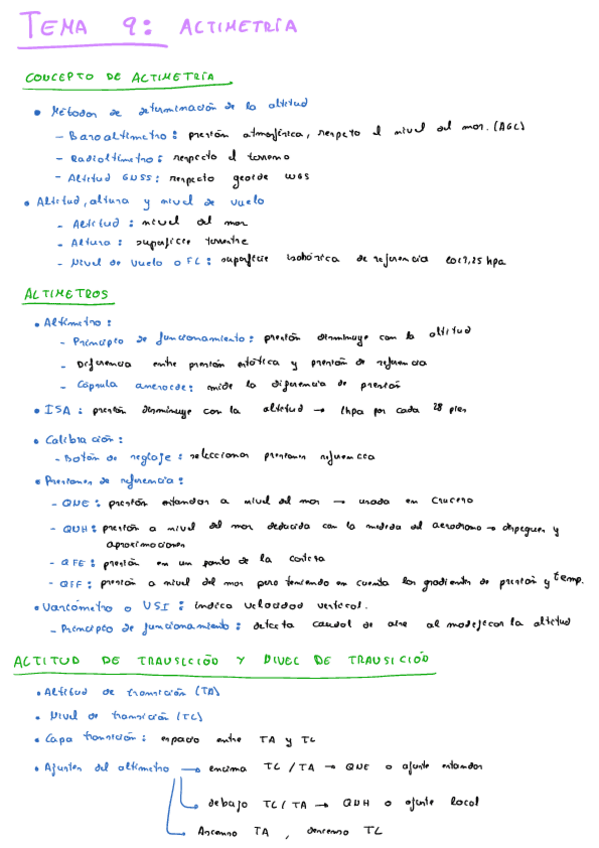 TEMA 9: ALTIMETRÍA
CONCEPTO DE ALTIMETRÍA
• Métodos de determinación de la altitud
– Baroaltímetro: presión atmosférica, respecto el nivel del mar. (AGL)
– Radioltímetro: respecto el terreno
– Altitud GNSS: respecto geoide WGS
• Altitud, altura y nivel de vuelo
– Altitud: nivel del mar
– Altura: superficie terrestre
– Nivel de vuelo o FL: superficie isobárica de referencia 1013,25 hpa
ALTIMETROS
• Altímetro:
– Principio de funcionamiento: presión disminuye con la altitud
– Diferencia entre presión estática y presión de referencia
– Cápsula aneroide: mide la diferencia de presión
• ISA: presión disminuye con la altitud → 1hpa por cada 28 pies
• Calibración:
– Botón de reglaje: seleccionar presiones referencia
• Presiones de referencia:
– QNE: presión estandar a nivel del mar → usada en crucero
– QNH: presión a nivel del mar deducida con la medida del aerodromo → despegues y
aproximaciones
– QFE: presión en un punto de la corteza
– QFF: presión a nivel del mar pero teniendo en cuenta los gradientes de presión y temp.
• Variómetro o VSI: indica velocidad vertical.
– Principio de funcionamiento: detecta caudal de aire al modificar la altitud
ACTITUD DE TRANSICIÓN Y NIVEL DE TRANSICIÓN
• Altitud de transición (TA)
• Nivel de transición (TL)
• Capa transición: espacio entre TA y TL
• Ajustes del altímetro → encima TL / TA → QNE o ajuste estandar
debajo TL / TA → QNH o ajuste local
Ascenso TA, descenso TL